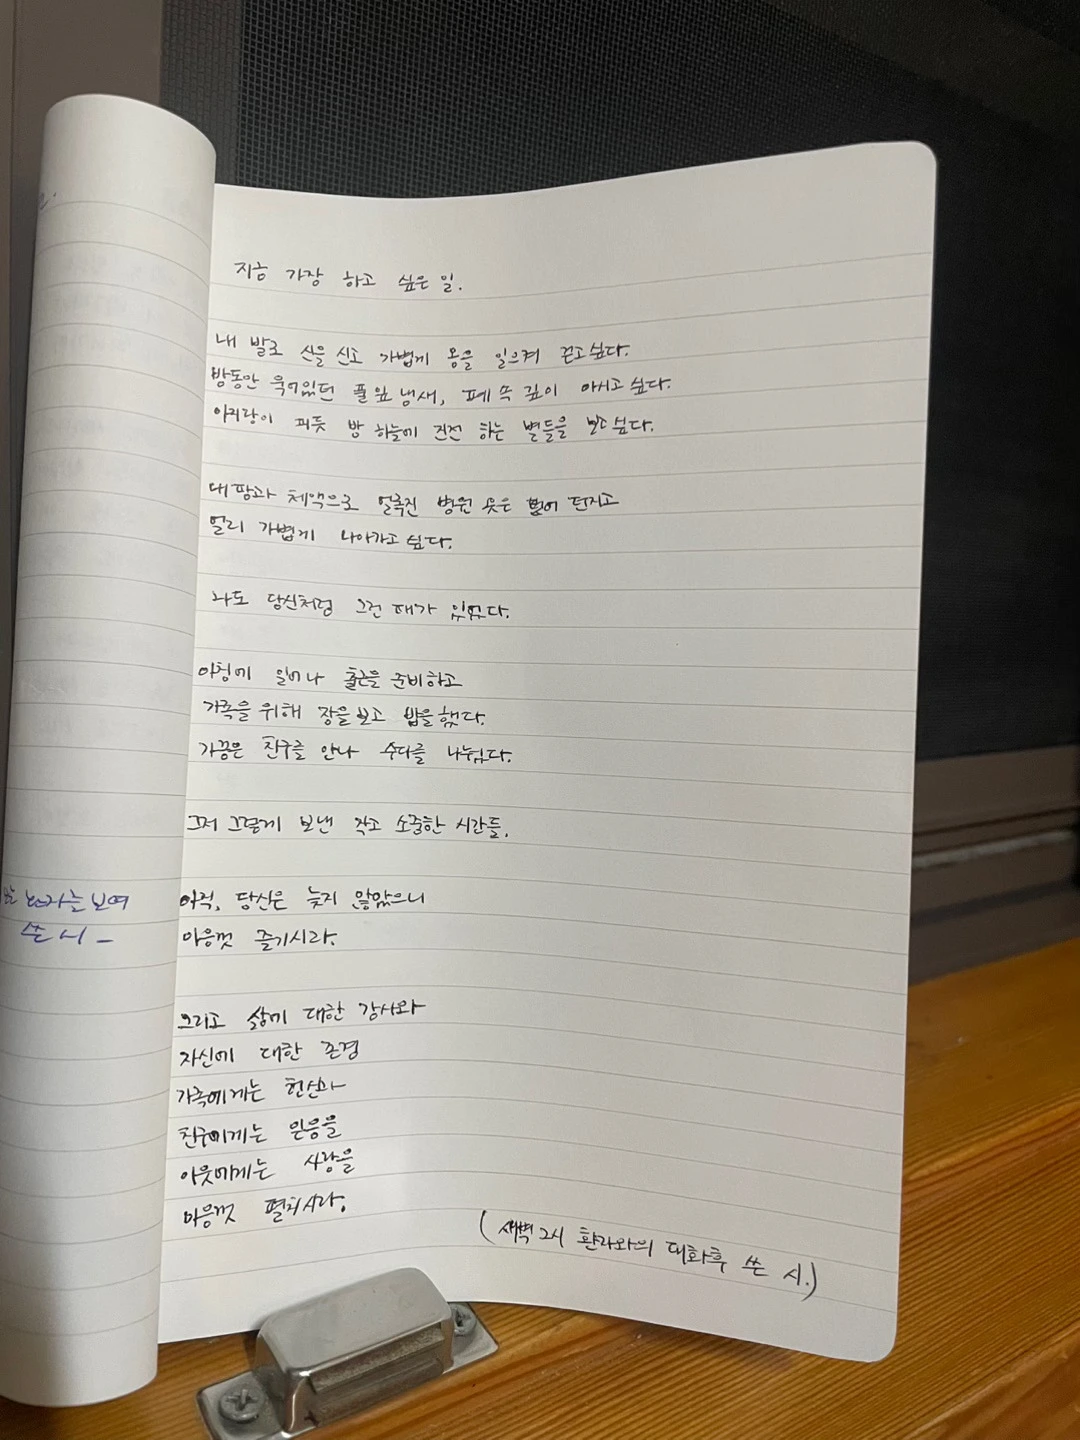 지금 가장 하고 싶은 일.
내 발로 신을 신고 가볍게 몸을 일으켜 걷고싶다.
밤동안 묵어있던 풀잎 냄새, 폐 속 깊이 마시고 싶다.
아지랑이 피듯 밤 하늘에 진전 하는 별들을 보고싶다.
내 땀과 체액으로 얼룩진 병원 옷은 벗어 던지고
멀리 가볍게 나아가고 싶다.
나도 당신처럼 그런 때가 있었다.
아침에 일어나 출근을 준비하고
가족을 위해 장을 보고 밥을 했다.
가끔은 친구를 만나 수다를 나눴다.
그저 그렇게 보낸 작고 소중한 시간들.
아직, 당신은 늦지 않았으니
마음껏 즐기시라.
그리고 삶에 대한 감사와
자신에 대한 존경
가족에게는 헌신과
친구에게는 믿음을
이웃에게는 사랑을
마음껏 펼치시라.
(새벽 2시 환자와의 대화후 쓴 시.)
보여
쓴 시 -